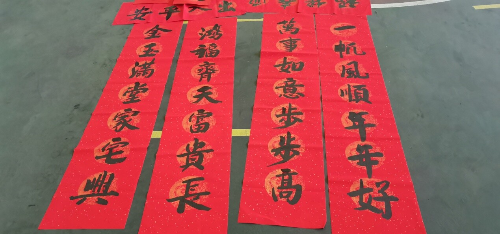 一帆風順年年好
萬事如意步步高
鴻福齊天富貴長
金玉滿堂家宅興